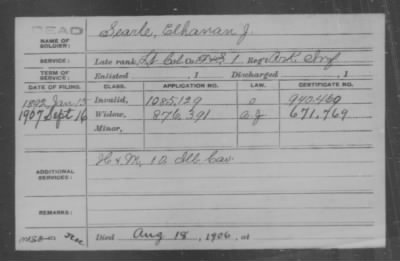 DEAD
NAME OF SOLDIER: Searle, Elhanan J.
SERVICE: Late rank, Lt Col Co. F&S 1, Reg't Ark Inf
TERM OF SERVICE: Enlisted , 1 Discharged , 1
DATE OF FILING. CLASS. APPLICATION NO. LAW. CERTIFICATE NO.
1892 Jan 13 Invalid, 1085,129
1907 Sept 16 Widow, 876,391 671,769
Minor,
ADDITIONAL SERVICES: 10 Ill Cav
REMARKS:
Died Aug 18, 1906, at